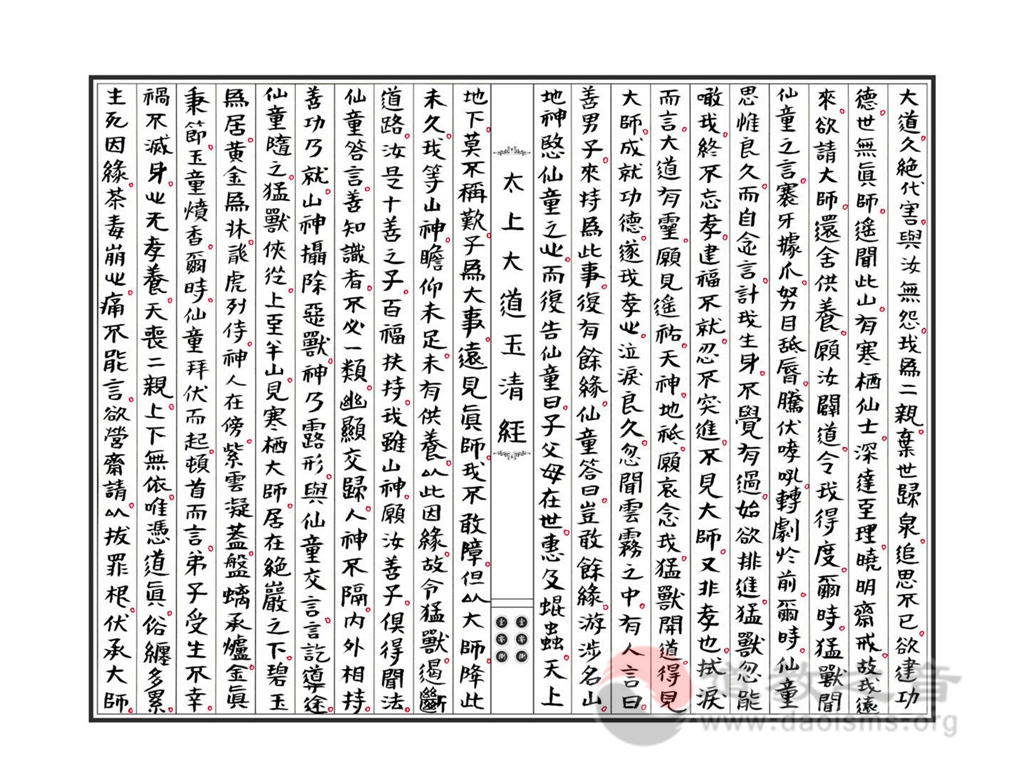 大道。久絕代害。與汝無怨。我爲二親。棄世歸泉。追思不已。欲建功
德。世無眞師。遙聞此山。有寒栖仙士。深達至理。曉明齋戒。故我遠
來。欲請大師。還舍供養。願汝闢道。令我得度。爾時。猛獸聞
仙童之言。褰牙據爪。努目舐脣。騰伏哮吼。轉劇於前。爾時。仙童
思惟良久。而自念言。計我生身。不覺有過。始欲排進。猛獸忽能
噉我。終不忘孝。建福不就。忍不突進。不見大師。又非孝也。拭淚
而言。大道有靈。願見遙祐。天神。地祗。願哀念我。猛獸開道。得見
大師。成就功德。遂我孝心。泣淚良久。忽聞雲霧之中。有人言曰。
善男子。來持爲此事。復有餘緣。仙童答曰。豈敢餘緣。游涉名山。
地神愍仙童之心。而復告仙童曰。子父母在世。惠及蜫蟲。天上
太上大道玉清經
地下。莫不稱歎。子爲大事。遠見眞師。我不敢障。但以大師降此
未久。我等山神。瞻仰未足。未有供養。以此因緣。故令猛獸。遏斷
道路。汝是十善之子。百福扶持。我雖山神。願汝善子。俱得聞法。
仙童答言。善知識者。不必一類。幽顯交歸。人神不隔。內外相持。
善功乃就。山神攝除惡獸。神乃露形。與仙童交言。言訖導途。
仙童隨之。猛獸俠從。上至半山。見寒栖大師。居在絕巖之下。碧玉
爲居。黃金爲牀。龍虎列侍。神人在傍。紫雲凝蓋。盤螭承爐。金眞
秉節。玉童燌香。爾時。仙童拜伏而起。頓首而言。弟子受生不幸。
禍不滅身。心无孝養。天喪二親。上下無依。唯憑道眞。俗纏多累。
主死因緣。荼毒崩心。痛不能言。欲營齋請。以拔罪根。伏承大師。
道教之音
www.daoisms.org